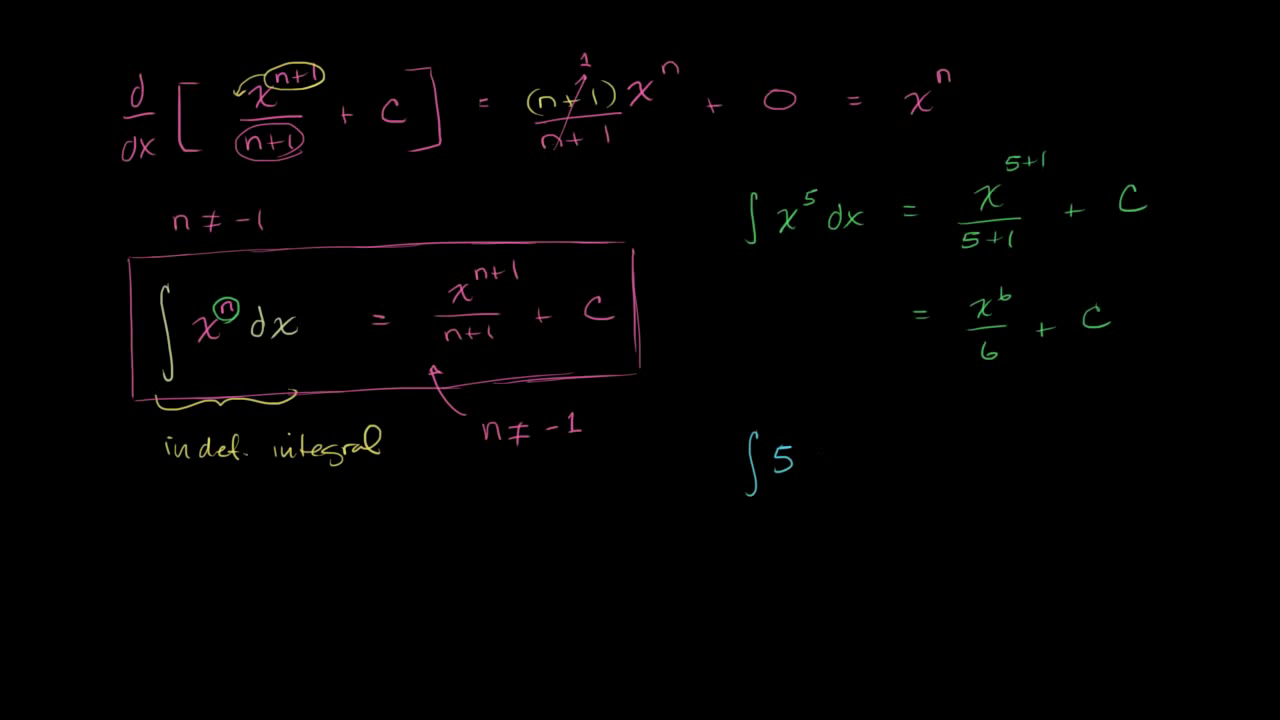 d/dx [ x^(n+1)/(n+1) + C ] = (n+1)x^n/(n+1) + 0 = x^n
1
n ≠ -1
∫ x^n dx = x^(n+1)/(n+1) + C
n ≠ -1
indef. integral
∫ x^5 dx = x^(5+1)/(5+1) + C
= x^6/6 + C
∫ 5